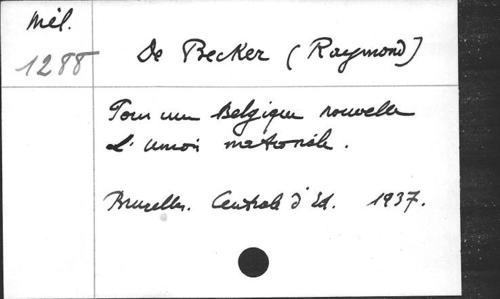 Mél.
1288
De Becker (Raymond)
Pour une Belgique nouvelle
L'union nationale.
Bruxelles. Centrale d'Ed. 1937.